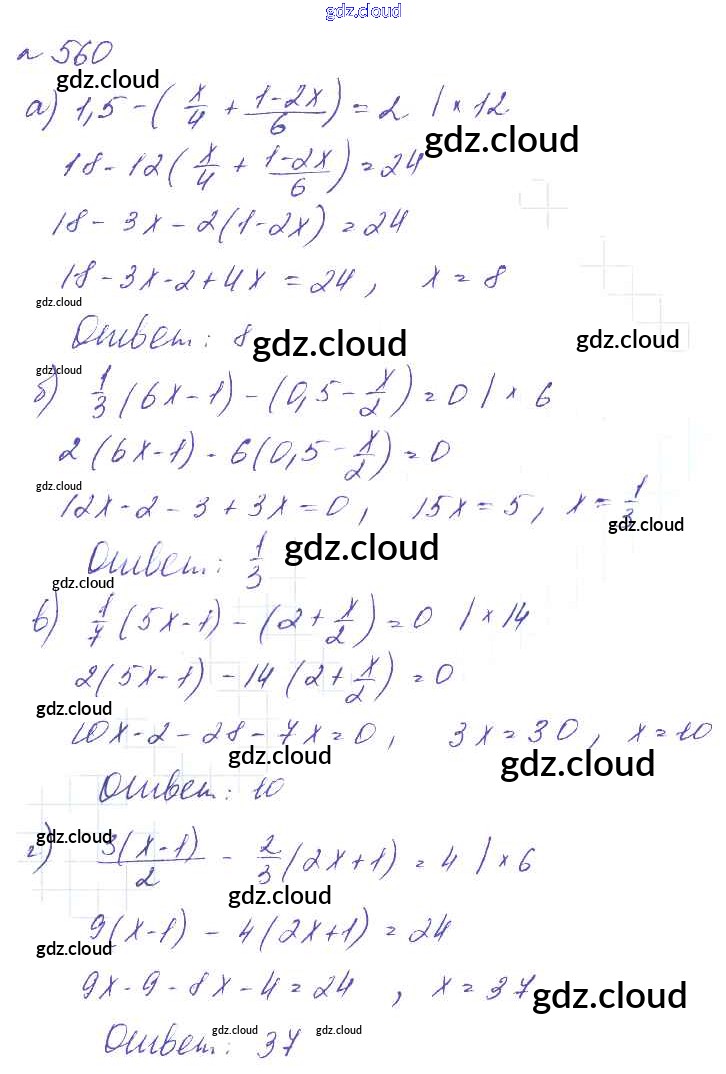 gdz.cloud
n 560
gdz.cloud
а) 1,5 - (x/4 + (1-2x)/6) = 2 | × 12
gdz.cloud
18 - 12(x/4 + (1-2x)/6) = 24
18 - 3x - 2(1-2x) = 24
18 - 3x - 2 + 4x = 24, x = 8
gdz.cloud
Ответ: 8
gdz.cloud
gdz.cloud
gdz.cloud
б) 1/3 (6x-1) - (0,5 - x/2) = 0 | × 6
2(6x-1) - 6(0,5 - x/2) = 0
gdz.cloud
12x - 2 - 3 + 3x = 0, 15x = 5, x = 1/3
gdz.cloud
Ответ: 1/3
gdz.cloud
gdz.cloud
в) 1/7 (5x-1) - (2 + x/2) = 0 | × 14
2(5x-1) - 14(2 + x/2) = 0
gdz.cloud
10x - 2 - 28 - 7x = 0, 3x = 30, x = 10
gdz.cloud
gdz.cloud
Ответ: 10
gdz.cloud
г) 3(x-1)/2 - 2/3 (2x+1) = 4 | × 6
gdz.cloud
9(x-1) - 4(2x+1) = 24
gdz.cloud
9x - 9 - 8x - 4 = 24, x = 37
gdz.cloud
gdz.cloud
gdz.cloud
Ответ: 37